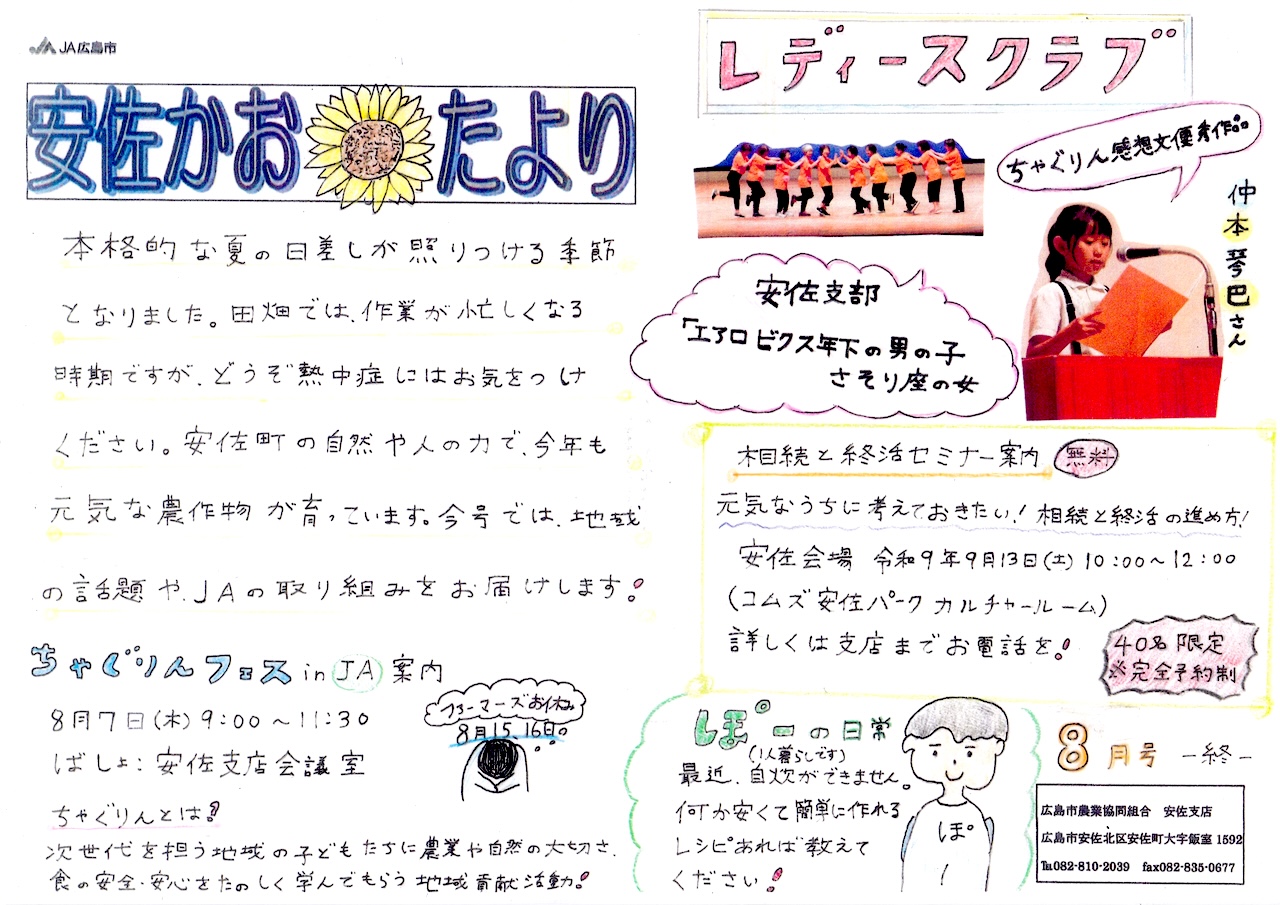 JA広島市
安佐かお たより
本格的な夏の日差しが照りつける季節
となりました。田畑では、作業が忙しくなる
時期ですが、どうぞ熱中症にはお気をつけ
ください。安佐町の自然や人の力で、今年も
元気な農作物が育っています。今号では、地域
の話題や、JAの取り組みをお届けします!
ちゃぐりんフェス in JA 案内
8月7日(木) 9:00~11:30
ばしょ: 安佐支店会議室
ファーマーズお休み
8月15、16日。
ちゃぐりんとは?
次世代を担う地域の子どもたちに農業や自然の大切さ、
食の安全・安心をたのしく学んでもらう地域貢献活動!
レディースクラブ
ちゃぐりん感想文優秀作品
仲本琴巴さん
安佐支部
「エアロビクス年下の男の子
さそり座の女
相続と終活セミナー案内 無料
元気なうちに考えておきたい! 相続と終活の進め方!
安佐会場 令和9年9月13日(土) 10:00~12:00
(コムズ安佐パーク カルチャールーム)
詳しくは支店までお電話を!
40名限定
※完全予約制
ぽーの日常
(1人暮らしです)
最近、自炊ができません。
何か安くて簡単に作れる
レシピあれば教えて
ください!
ぽ
8月号 -終-
広島市農業協同組合 安佐支店
広島市安佐北区安佐町大字飯室1592
℡082-810-2039 fax082-835-0677